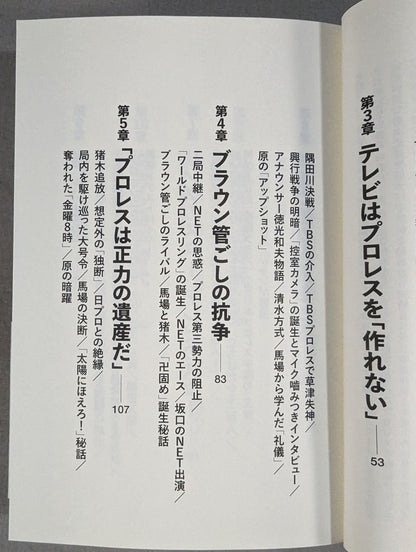 第3章 テレビはプロレスを「作れない」── 53
隅田川決戦／TBSの介入／TBSプロレスで草津失神／
興行戦争の明暗／「控室カメラ」の誕生とマイク嚙みつきインタビュー／
アナウンサー徳光和夫物語／清水方式／馬場から学んだ「礼儀」／
原の「アップショット」
第4章 ブラウン管ごしの抗争── 83
二局中継／NETの思惑／プロレス第三勢力の阻止／
「ワールドプロレスリング」の誕生／NETのエース／坂口のNET出演／
ブラウン管ごしのライバル／馬場と猪木／「卍固め」誕生秘話
第5章 「プロレスは正力の遺産だ」── 107
猪木追放／想定外の「独断」／日プロとの絶縁／
局内を駆け巡った大号令／馬場の決断／「太陽にほえろ！」秘話／
奪われた「金曜8時」／原の暗躍